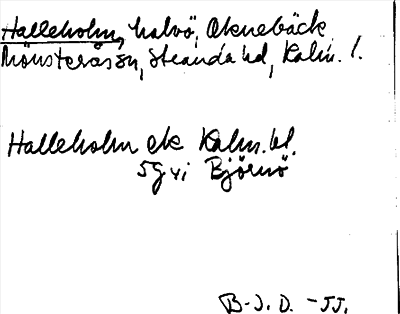 Halleholm, halvö, Oknebäck
Mönsterås sn, Stranda hd, Kalm. l.
Halleholm ek Kalm. bl.
5g vi Björnö
B-J. D. -55.